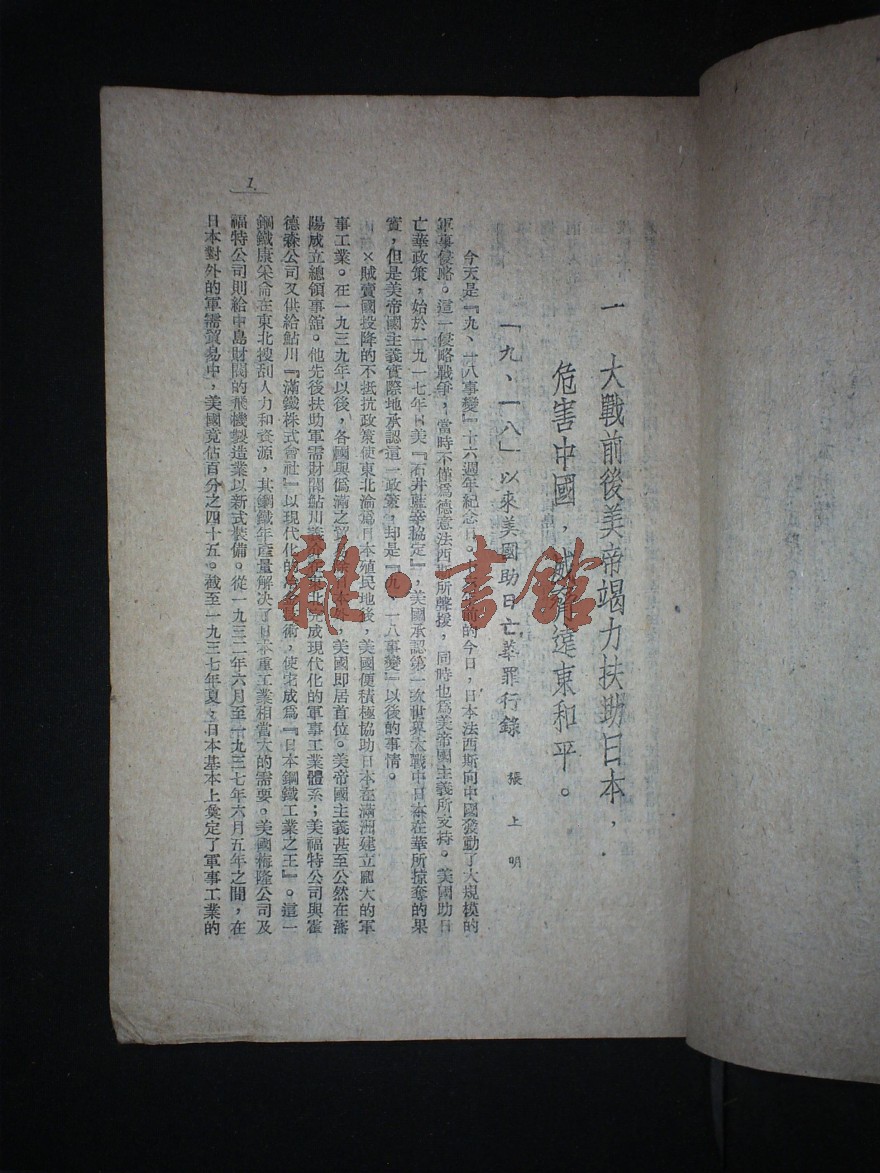 一　大戰前後美帝竭力扶助日本，
危害中國，威脅遠東和平。
「九、一八」以來美國助日亡華罪行錄　張上明
今天是『九、一八事變』十六週年紀念日。十六年前的今日，日本法西斯向中國發動了大規模的
軍事侵略。這一侵略戰爭，當時不僅爲德意法西斯所聲援，同時也爲美帝國主義所支持。美國助日
亡華政策，始於一九一七年日美『石井藍辛協定』，美國承認第一次世界大戰中日本在華所掠奪的果
實，但是美帝國主義實際地承認這一政策，却是『九、一八事變』以後的事情。
×賊賣國投降的不抵抗政策使東北淪爲日本殖民地後，美國便積極協助日本在滿洲建立龐大的軍
事工業。在一九三九年以後，各國與僞滿之貿易除日本外，美國即居首位。美帝國主義甚至公然在瀋
陽成立總領事館。他先後扶助軍需財閥鮎川義介在東北完成現代化的軍事工業體系；美福特公司與霍
德森公司又供給鮎川『滿鐵株式會社』以現代化的技術，使它成爲『日本鋼鐵工業之王』。這一
鋼鐵康采侖在東北搜刮人力和資源，其鋼鐵年產量解决了日本重工業相當大的需要。美國梅隆公司及
福特公司則給中島財閥的飛機製造業以新式裝備。從一九三二年六月至一九三七年六月五年之間，在
日本對外的軍需貿易中，美國竟佔百分之四十五。截至一九三七年夏，日本基本上奠定了軍事工業的
1.
雜·書館